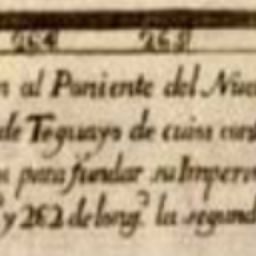 264 265
n al Poniente del Nue
de Teguayo de cuias cont
para fundar su Imperi
y 262 de long.ª la segund